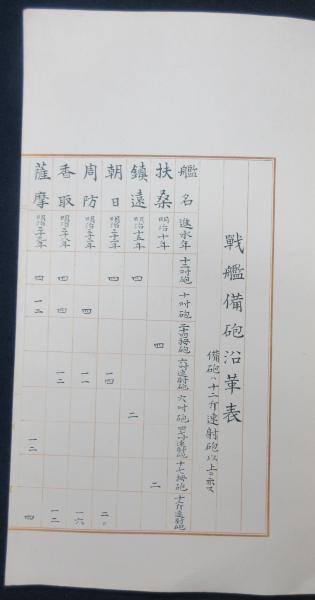 戰艦備砲沿革表
備砲ハ十二斤速射砲以上ヲ示ス
艦名 進水年 十二吋砲 十吋砲 二十四拇砲 六吋速射砲 六吋砲 四吋七速射砲 十七拇砲 十二斤速射砲
扶桑 明治十年 四 二
鎮遠 明治十五年 四 二
朝日 明治三十二年 四 一四 二〇
周防 明治三十三年 四 一一 一六
香取 明治三十八年 四 四 一二 一二
薩摩 明治三十九年 四 一二 一二 四